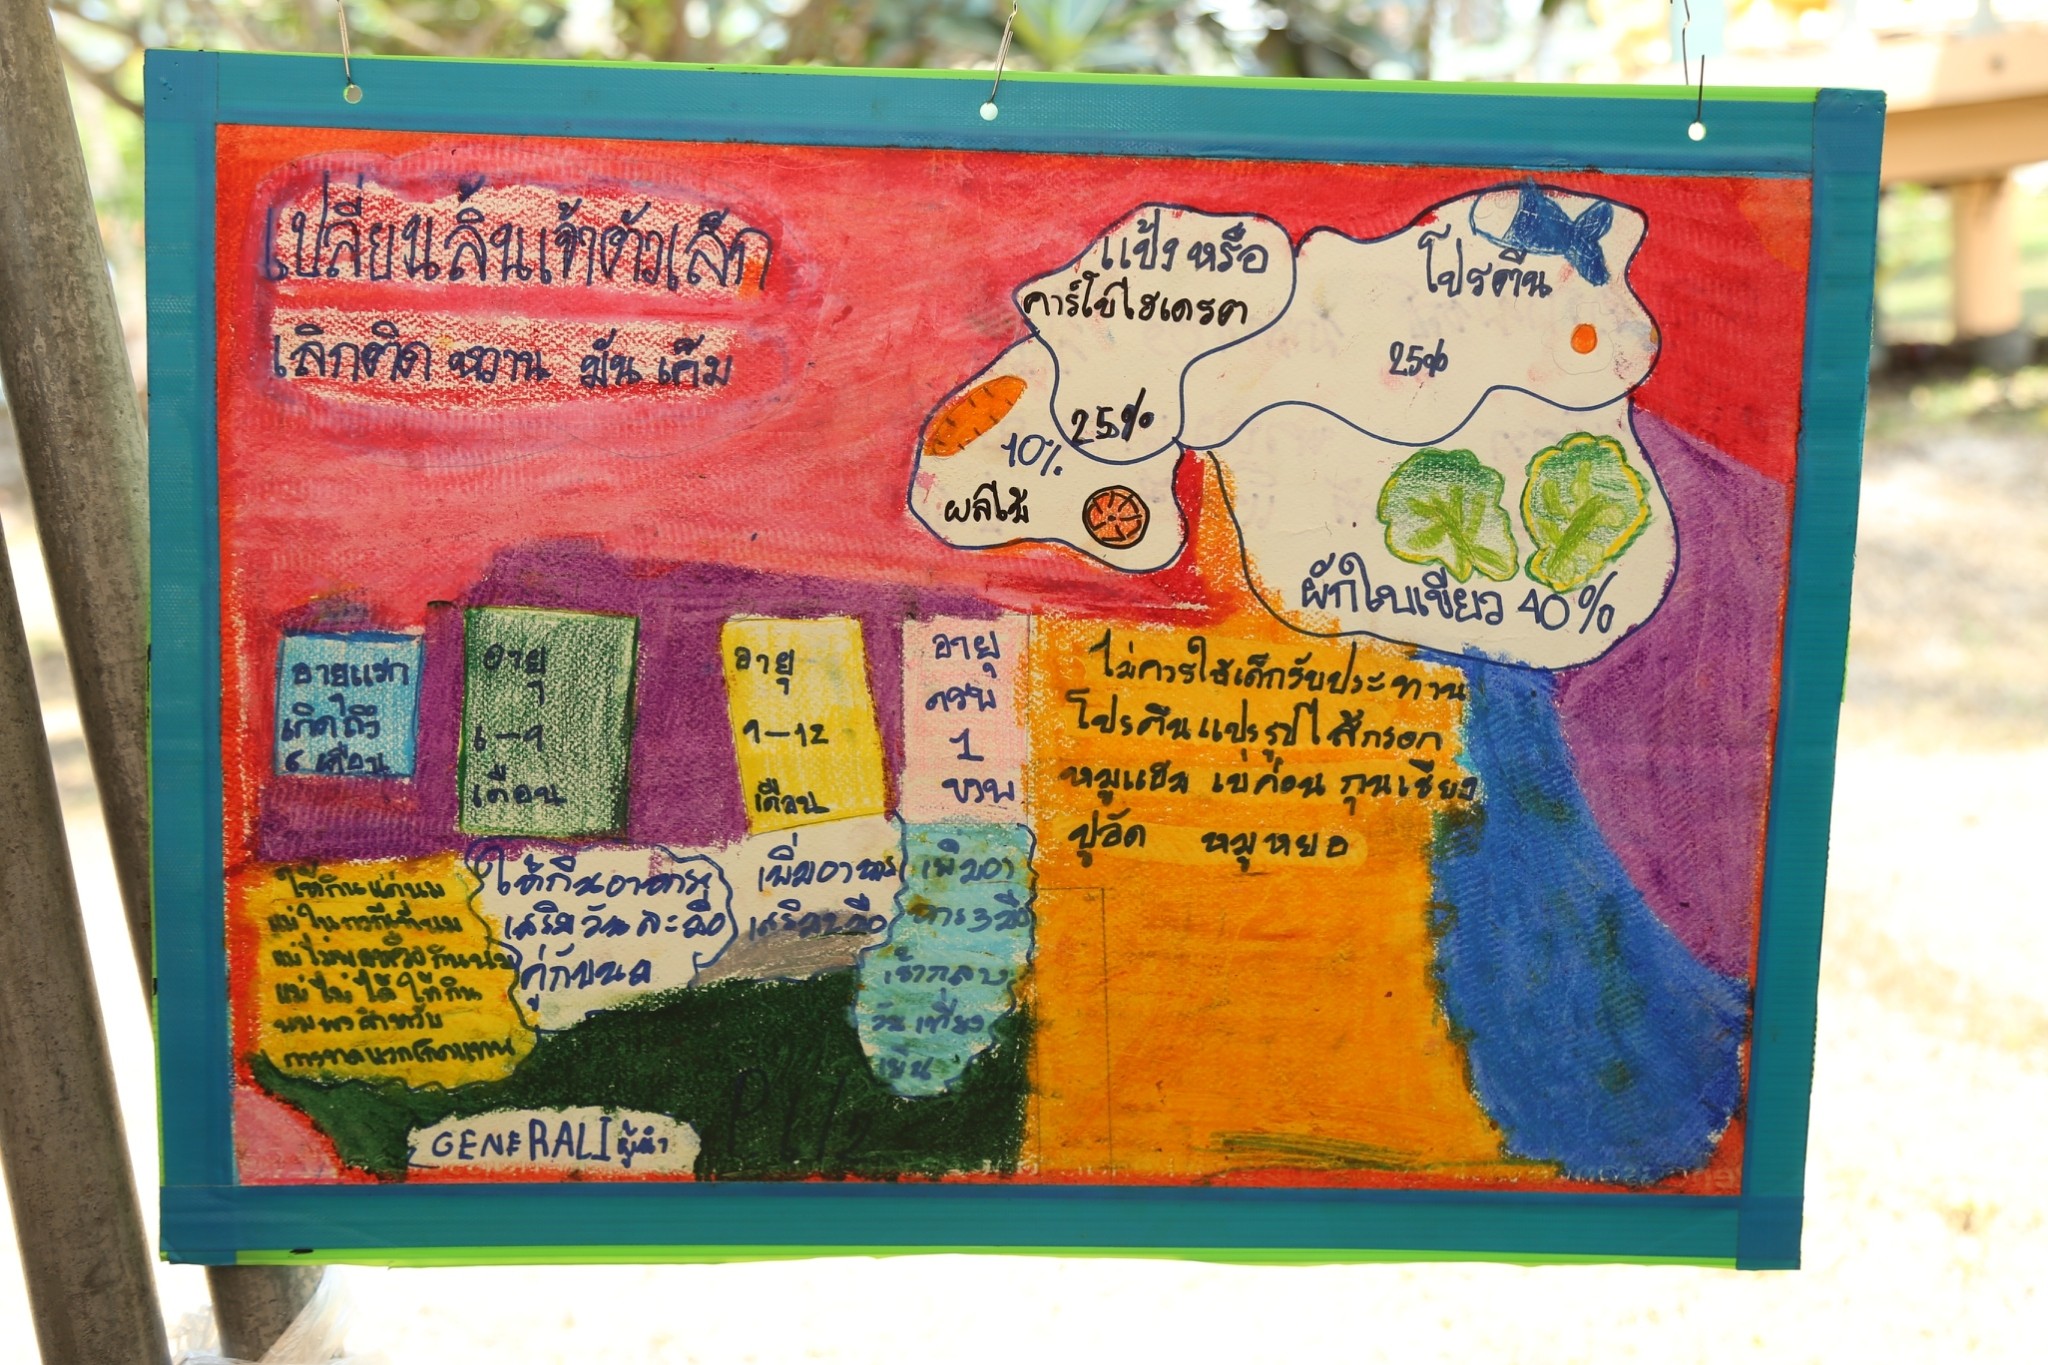 เปลี่ยนลิ้นเจ้าตัวเล็ก
เลิกติด หวาน มัน เค็ม
แป้งหรือ
คาร์โบไฮเดรต
25%
โปรตีน
25%
10%
ผลไม้
ผักใบเขียว 40%
อายุแรก
เกิดถึง
6 เดือน
อายุ
6-9
เดือน
อายุ
9-12
เดือน
อายุ
ครบ
1
ขวบ
ไม่ควรให้เด็กรับประทาน
โปรตีนแปรรูปไส้กรอก
หมูแฮม เบค่อน กุนเชียง
ปูอัด หมูหยอ
ให้กินแค่นม
แม่ในกรณีที่นม
แม่ไม่พอหรือกินนม
แม่ไม่ได้ ให้กิน
นมผงสำหรับ
การทดแทน
ให้กินอาหาร
เสริมวันละมื้อ
คู่กับนม
เพิ่มอาหาร
เสริม2มื้อ
เพิ่มอา
หาร3มื้อ
เช้ากลาง
วันเที่ยง
เย็น
GENERALI ผู้นำ